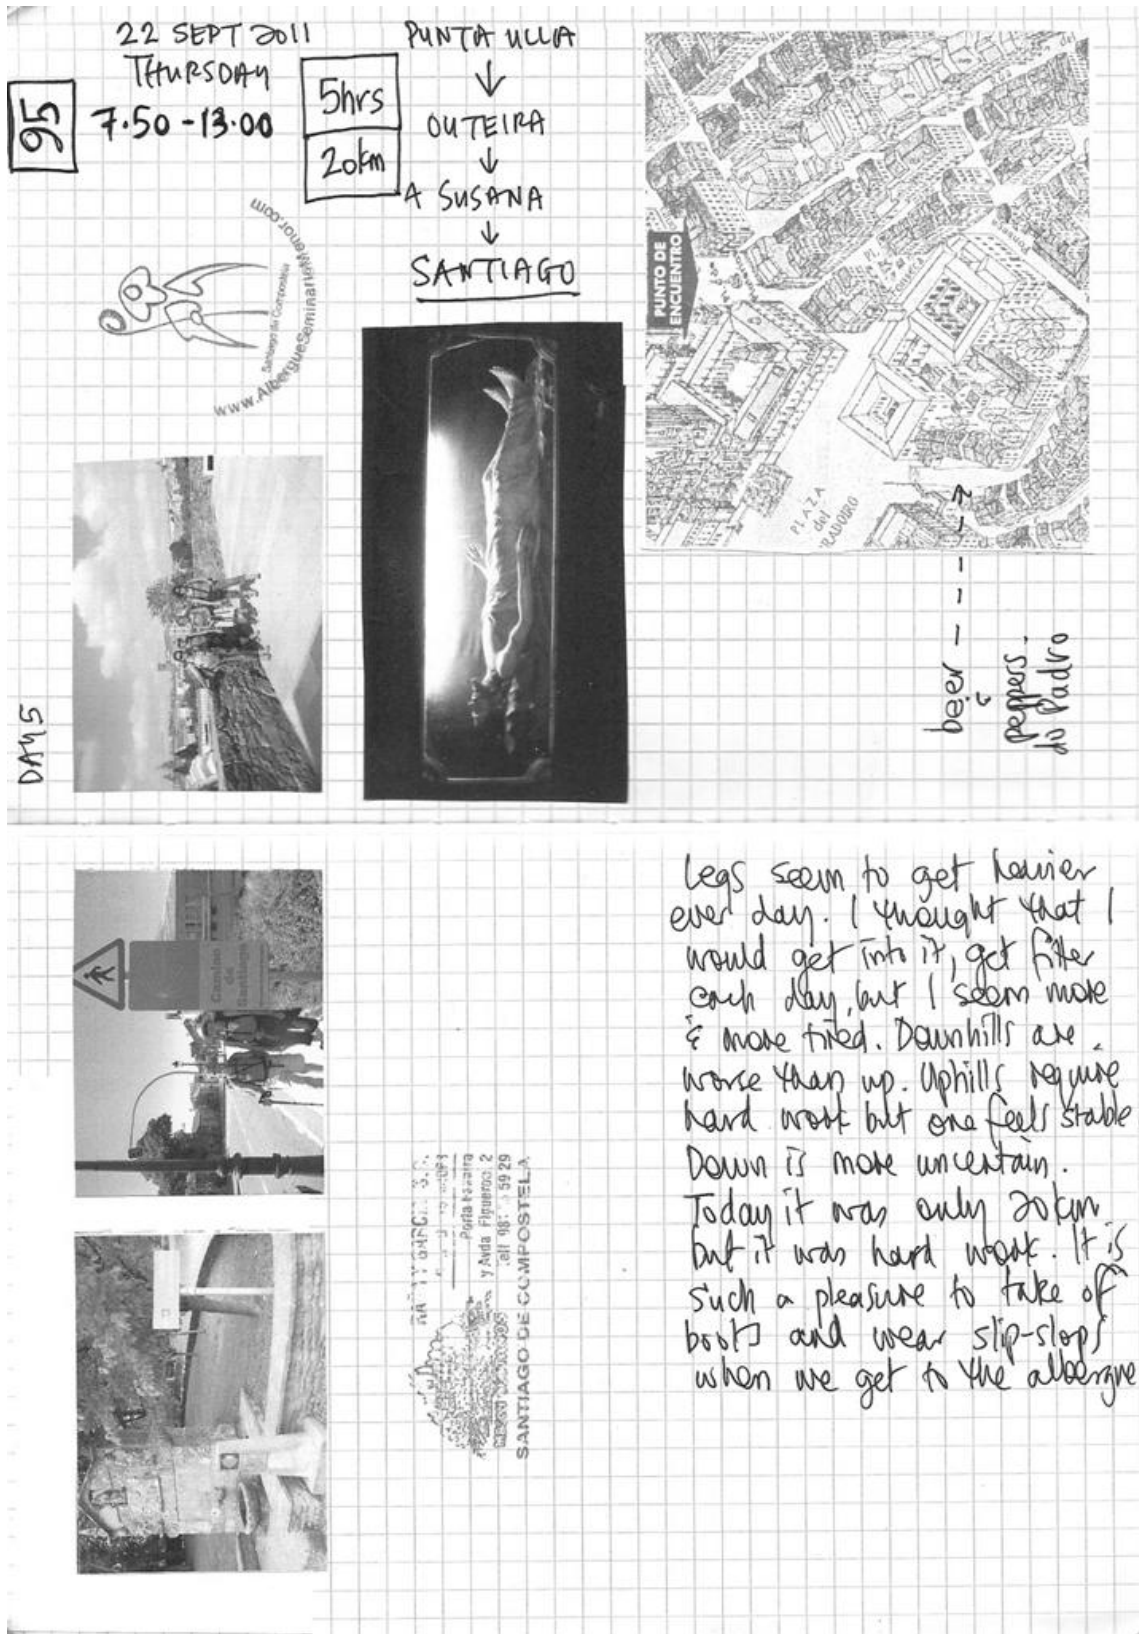 22 SEPT 2011
THURSDAY
7.50 - 13.00
95
5hrs
20km
PUNTA ULLA
↓
OUTEIRA
↓
A SUSANA
↓
SANTIAGO
www.AlbergueSeminarioMenor.com
Santiago de Compostela
PUNTO DE
ENCUENTRO
PLAZA
del
RADOIRO
beer - - - - →
&
peppers.
do Padro
DAY 5
Camino
de
Santiago
y Avda Figueroa 2
59 29
SANTIAGO DE COMPOSTELA
Legs seem to get heavier
ever day. I thought that I
would get into it, get fitter
each day, but I seem more
& more tired. Downhills are
worse than up. Uphills require
hard work but one feels stable
Down is more uncertain.
Today it was only 20km
but it was hard work. It is
such a pleasure to take of
boots and wear slip-slops
when we get to the albergue